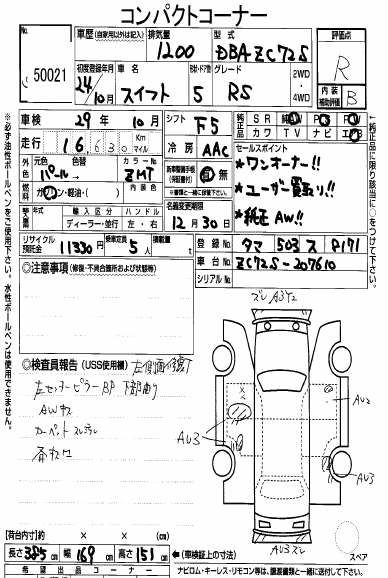 コンパクトコーナー
No. 50021
車歴 (自家用以外は記入) 排気量 1200 型式 DBA-ZC72S 評価点 R
初度登録年月 24年 10月 車名 スイフト ドア 5 グレード RS 2WD・4WD 内装補助評価 B
車検 29年 10月 シフト F5 純正品 SR TV
走行 16,630 Km マイル 冷房 AAC カワ TV ナビ エアB
元色 パール 色替 カラーNo. ZMT 有 無
セールスポイント
*ワンオーナー!!
*ユーザー買取り!!
*純正AW!!
燃料 ガソリン・軽油・( ) 内装色
輸入区分 ハンドル
ディーラー・並行 左・右
名義変更期限 12月30日
リサイクル預託金 11330円 乗車定員 5人 積載量 t
登録No. タマ 503 ス 9171
車台No. ZC72S-207610
シリアルNo.
◎注意事項 (修復・不具合箇所および状態等)
◎検査員報告 (USS使用欄) 左側面修理
左センターピラーBP下部曲り
AWキズ
カーペットスレ
ズレ A3Y2
AU3
AU2
AU3
AU3ズレ
スペア
【荷台内寸】 × × (cm)
長さ 385cm 幅 169cm 高さ 151cm ←(車検証上の寸法)
希望出品コーナー
ナビロム・キーレス・リモコン等は、譲渡書類と一緒に送付して下さい。
※必ず油性ボールペンをご使用下さい。水性ボールペンは使用できません。